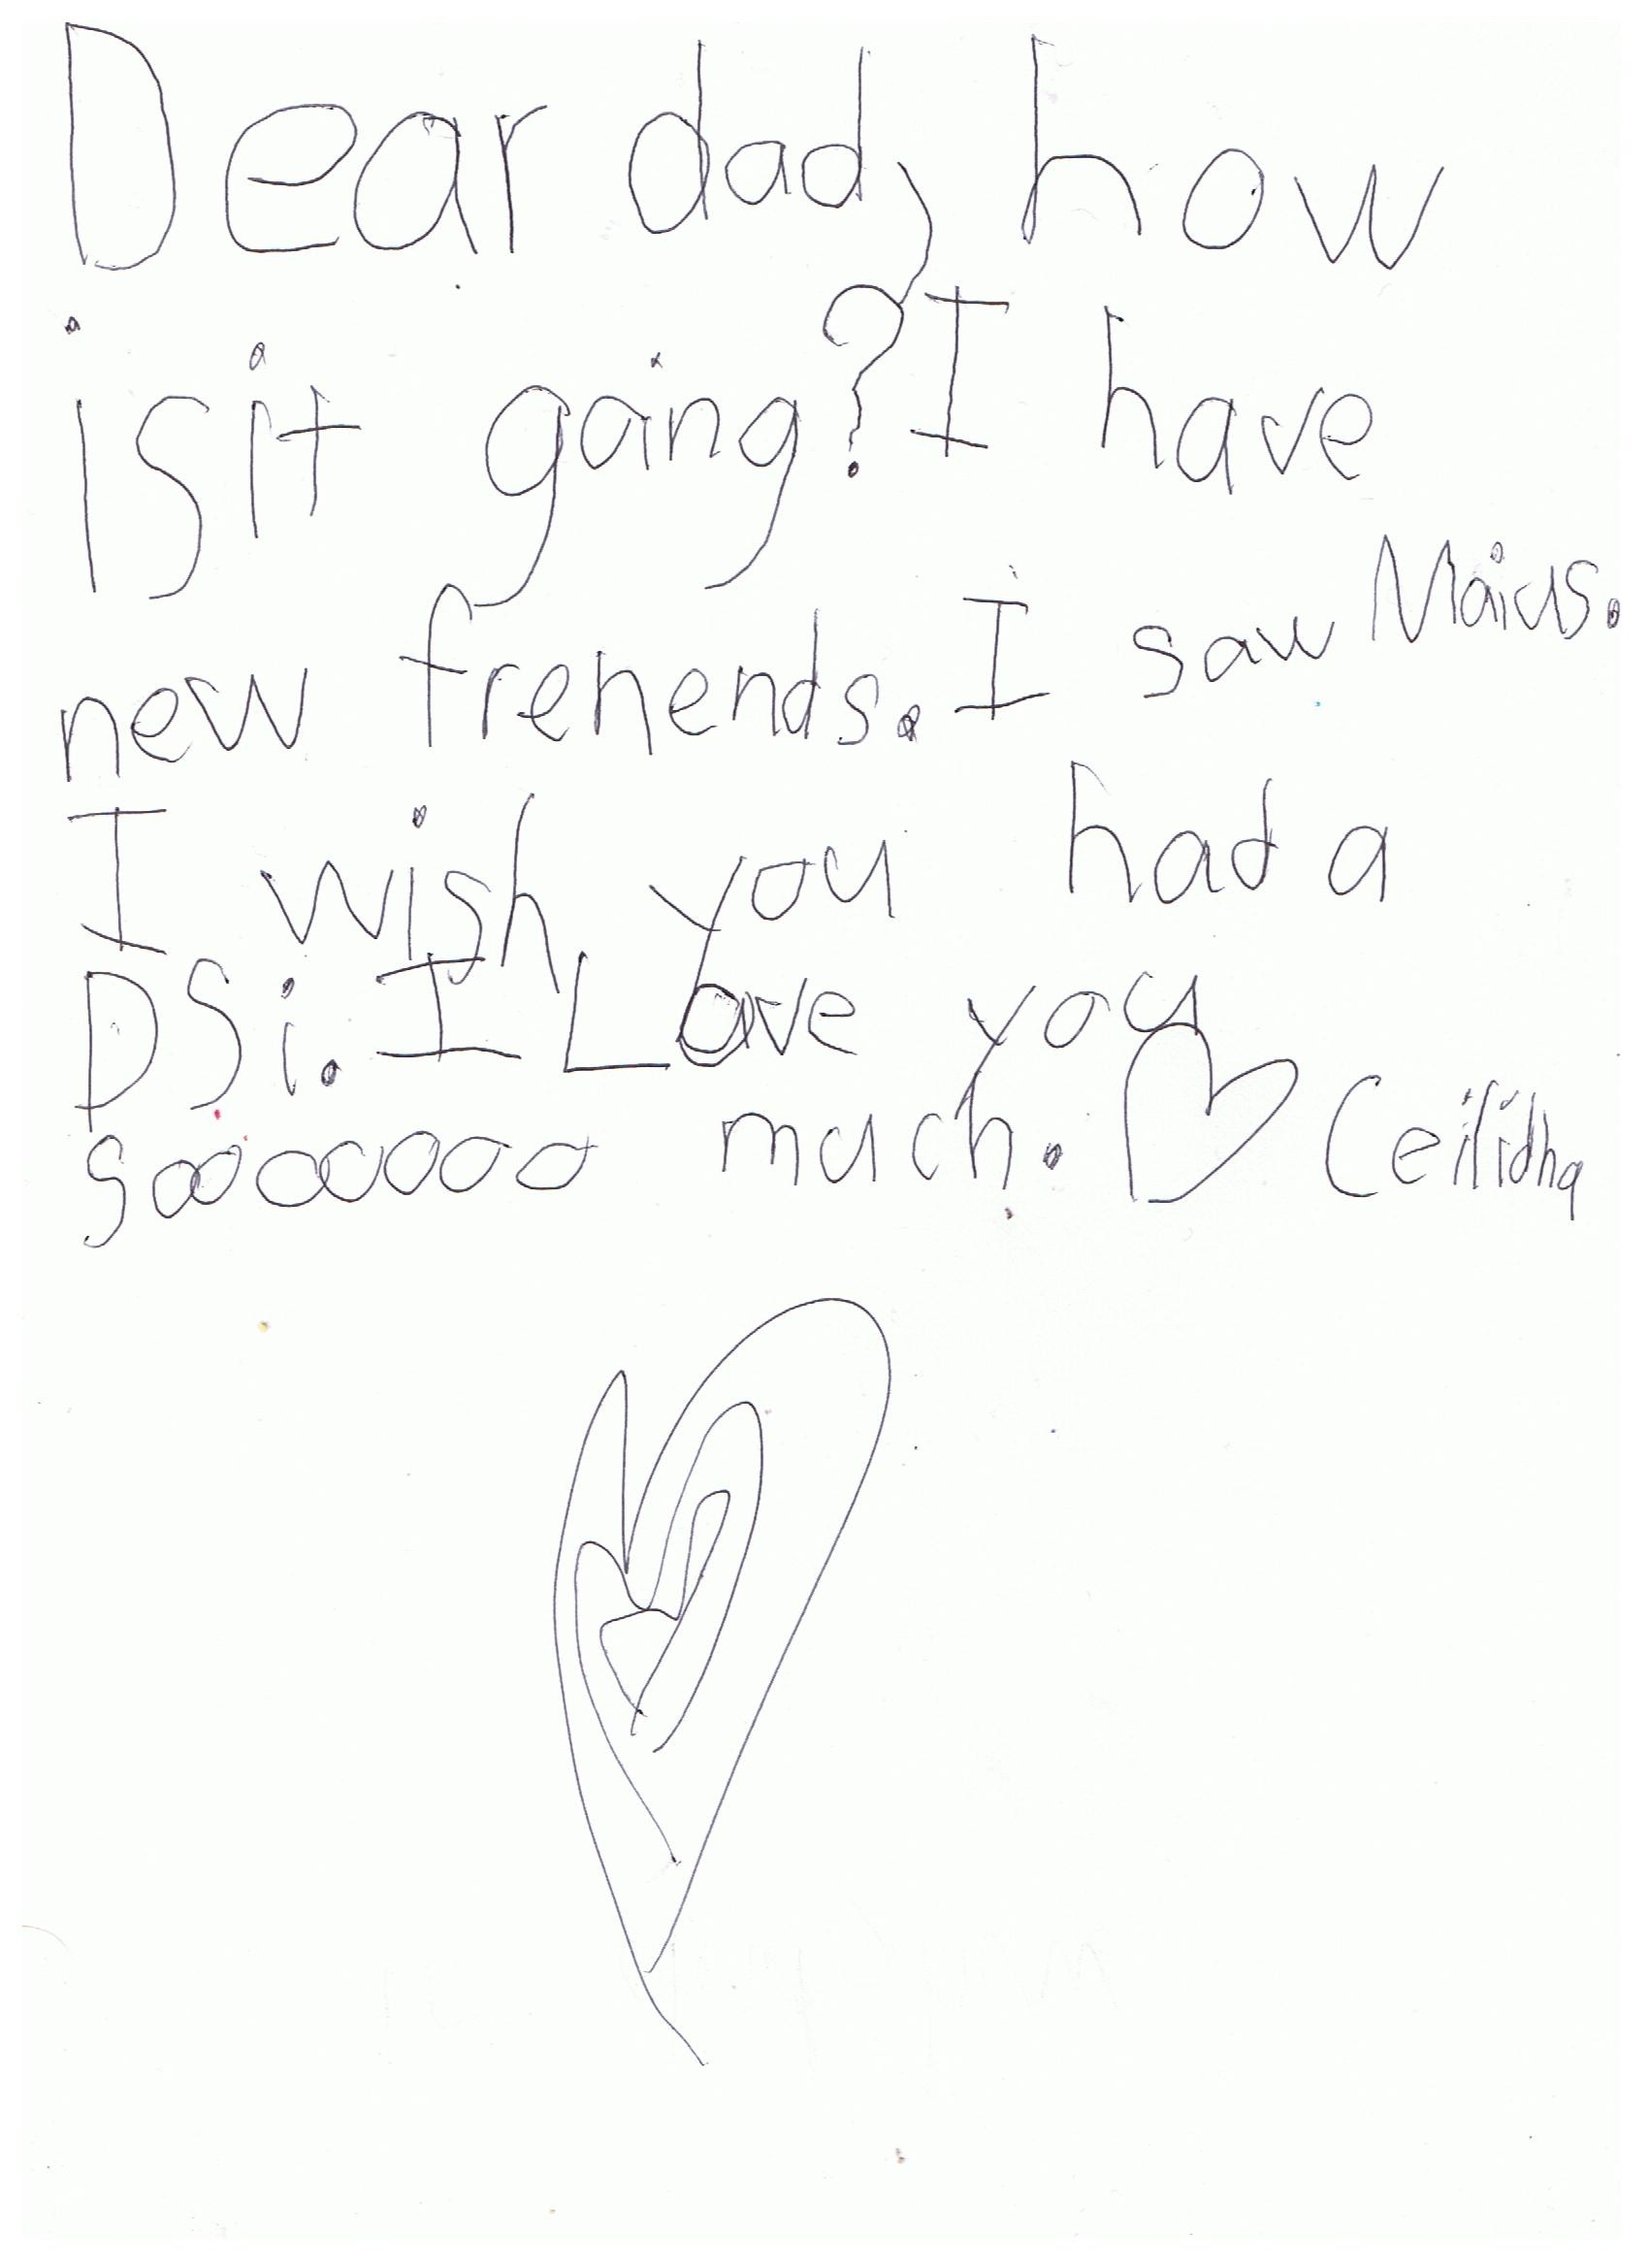 Dear dad, how
is it going? I have
new frenends. I saw Maius.
I wish you had a
DSi. I Love you
soooooooo much. Ceilidh